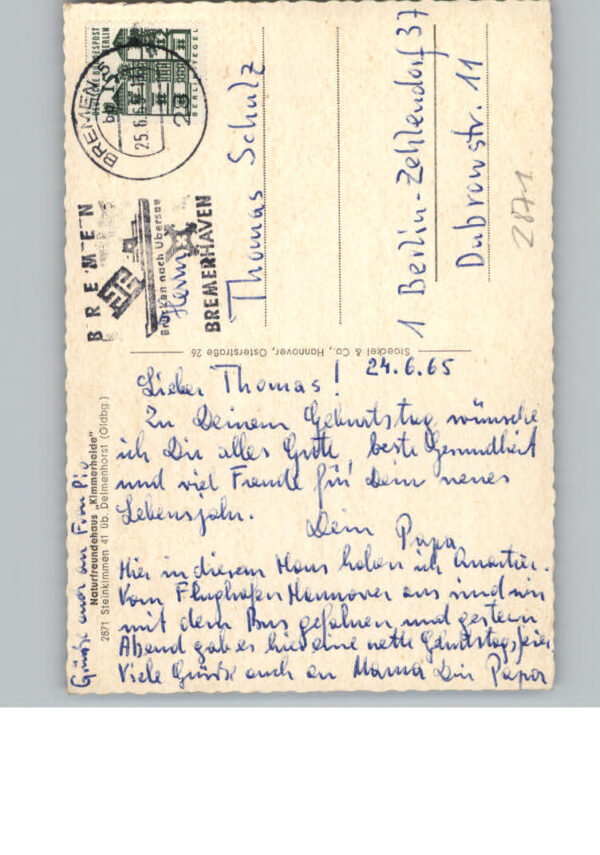 Lieber Thomas! 24.6.65
Zu Deinem Geburtstag wünsche
ich Dir alles Gute, beste Gesundheit
und viel Freude für Dein neues
Lebensjahr.
Dein Papa
Hier in diesem Haus haben wir Quartier.
Vom Flughafen Hannover aus sind wir
mit dem Bus gefahren und gestern
Abend gab es hier eine nette Geburtstagsfeier.
Viele Grüße auch an Mama Dein Papa
Grüße auch an Frau
Naturfreundehaus „Kimmerheide"
2871 Steinkimmen 41 üb. Delmenhorst (Oldbg.)
Stoeckel & Co., Hannover, Osterstraße 26
DEUTSCHE BUNDESPOST
BERLIN
BERLIN TEGEL
BREMEN 5
25.6.65
28
BREMEN
Brücken nach Übersee
BREMERHAVEN
Herrn
Thomas Schulz
1 Berlin-Zehlendorf 37
Dubrowstr. 11
2871